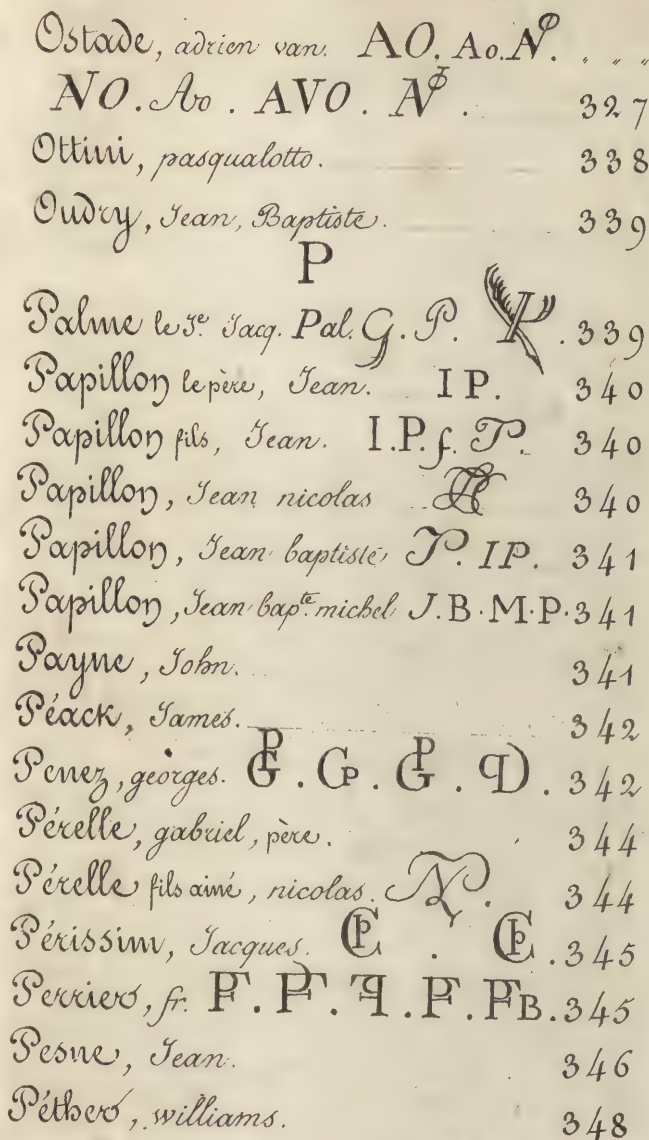 Ostade, adrien van. AO. Ao. . „ „
NO. Ao. AVO. 327
Ottini, pasqualotto. 338
Oudry, Jean, Baptiste. 339
P
Palme le Je. Jacq. Pal. G. P. . 339
Papillon le père, Jean. I P. 340
Papillon fils, Jean. I.P.f. P. 340
Papillon, Jean nicolas 340
Papillon, Jean baptiste P. IP. 341
Papillon, Jean bapte. michel J.B.M.P. 341
Payne, John. 341
Péack, James. 342
Penez, georges. GP. GP. GP. . 342
Pérelle, gabriel, père. 344
Pérelle fils ainé, nicolas. NP. 344
Périssim, Jacques. . . 345
Perriers, fr. PF. PF. . PF. PFB. 345
Pesne, Jean. 346
Péthers, williams. 348